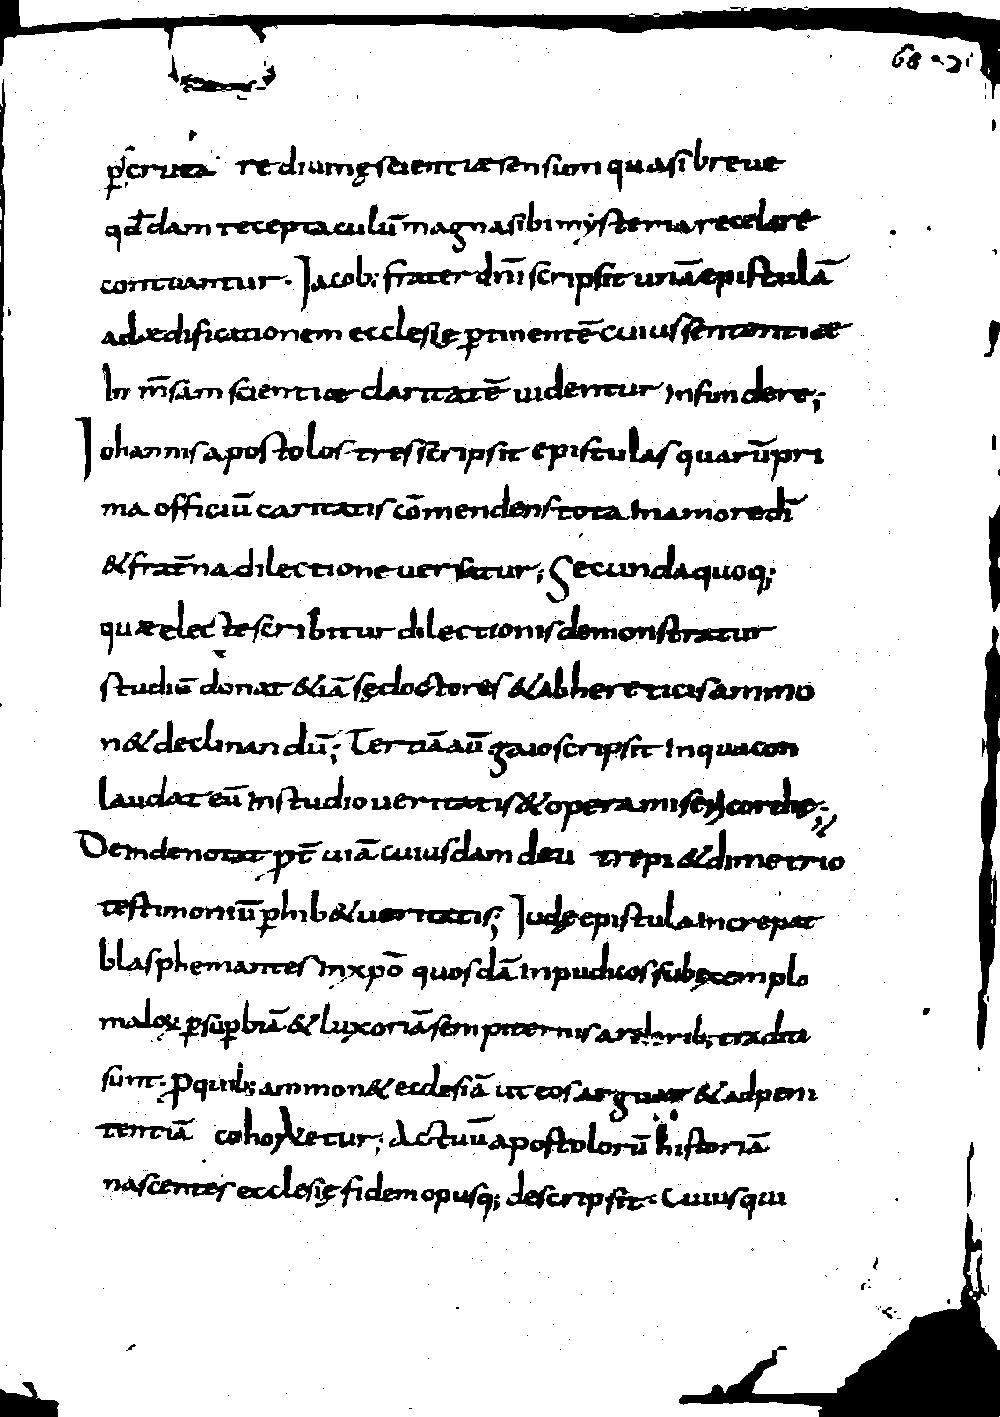 68
p̱scruta rediumę scientiæ sensium quasi breue
qđdam receptaculū magna sibi mysteria recelare
contuantur · Iacob; frater dn̄i scripsit unā epistulā
ad ædificationem ecclesię ꝑtinentē cuius sententiæ
In m̄sam scientiæ claritatē uidentur Infundere;
Iohannis apostolos tres scripsit epistulas quarū pri
ma officiū caritatis cōmendens tota In amore dī
& frat̄na dilectione uersatur; Secunda quoq;
quæ electe scribitur dilectionis demonstratur
studiū donat &iā sędoctores & ab hereticis ammo
n& declinandū; Tertiā aū gaio scripsit In qua con
laudat eū In studio ueritatis & opera misericordie;
Dem denotat p̄t uiā cuiusdam deu trepi & dimetrio
testimoniū ꝑhib& ueritatis; Iudę epistula Increpat
blasphemantes In xp̄o quosdā Inpudicos sub exemplo
maloꝝ ꝑ suꝑbiā & luxoriā sempiternis arderib; tradita
sunt · P quib; ammon& ecclesiā ut eos arguat & ad peni
tentiā cohort&etur; Actuū apostolorū historiā
nascentes ecclesię fidem opusq; descripsit · Cuius qui